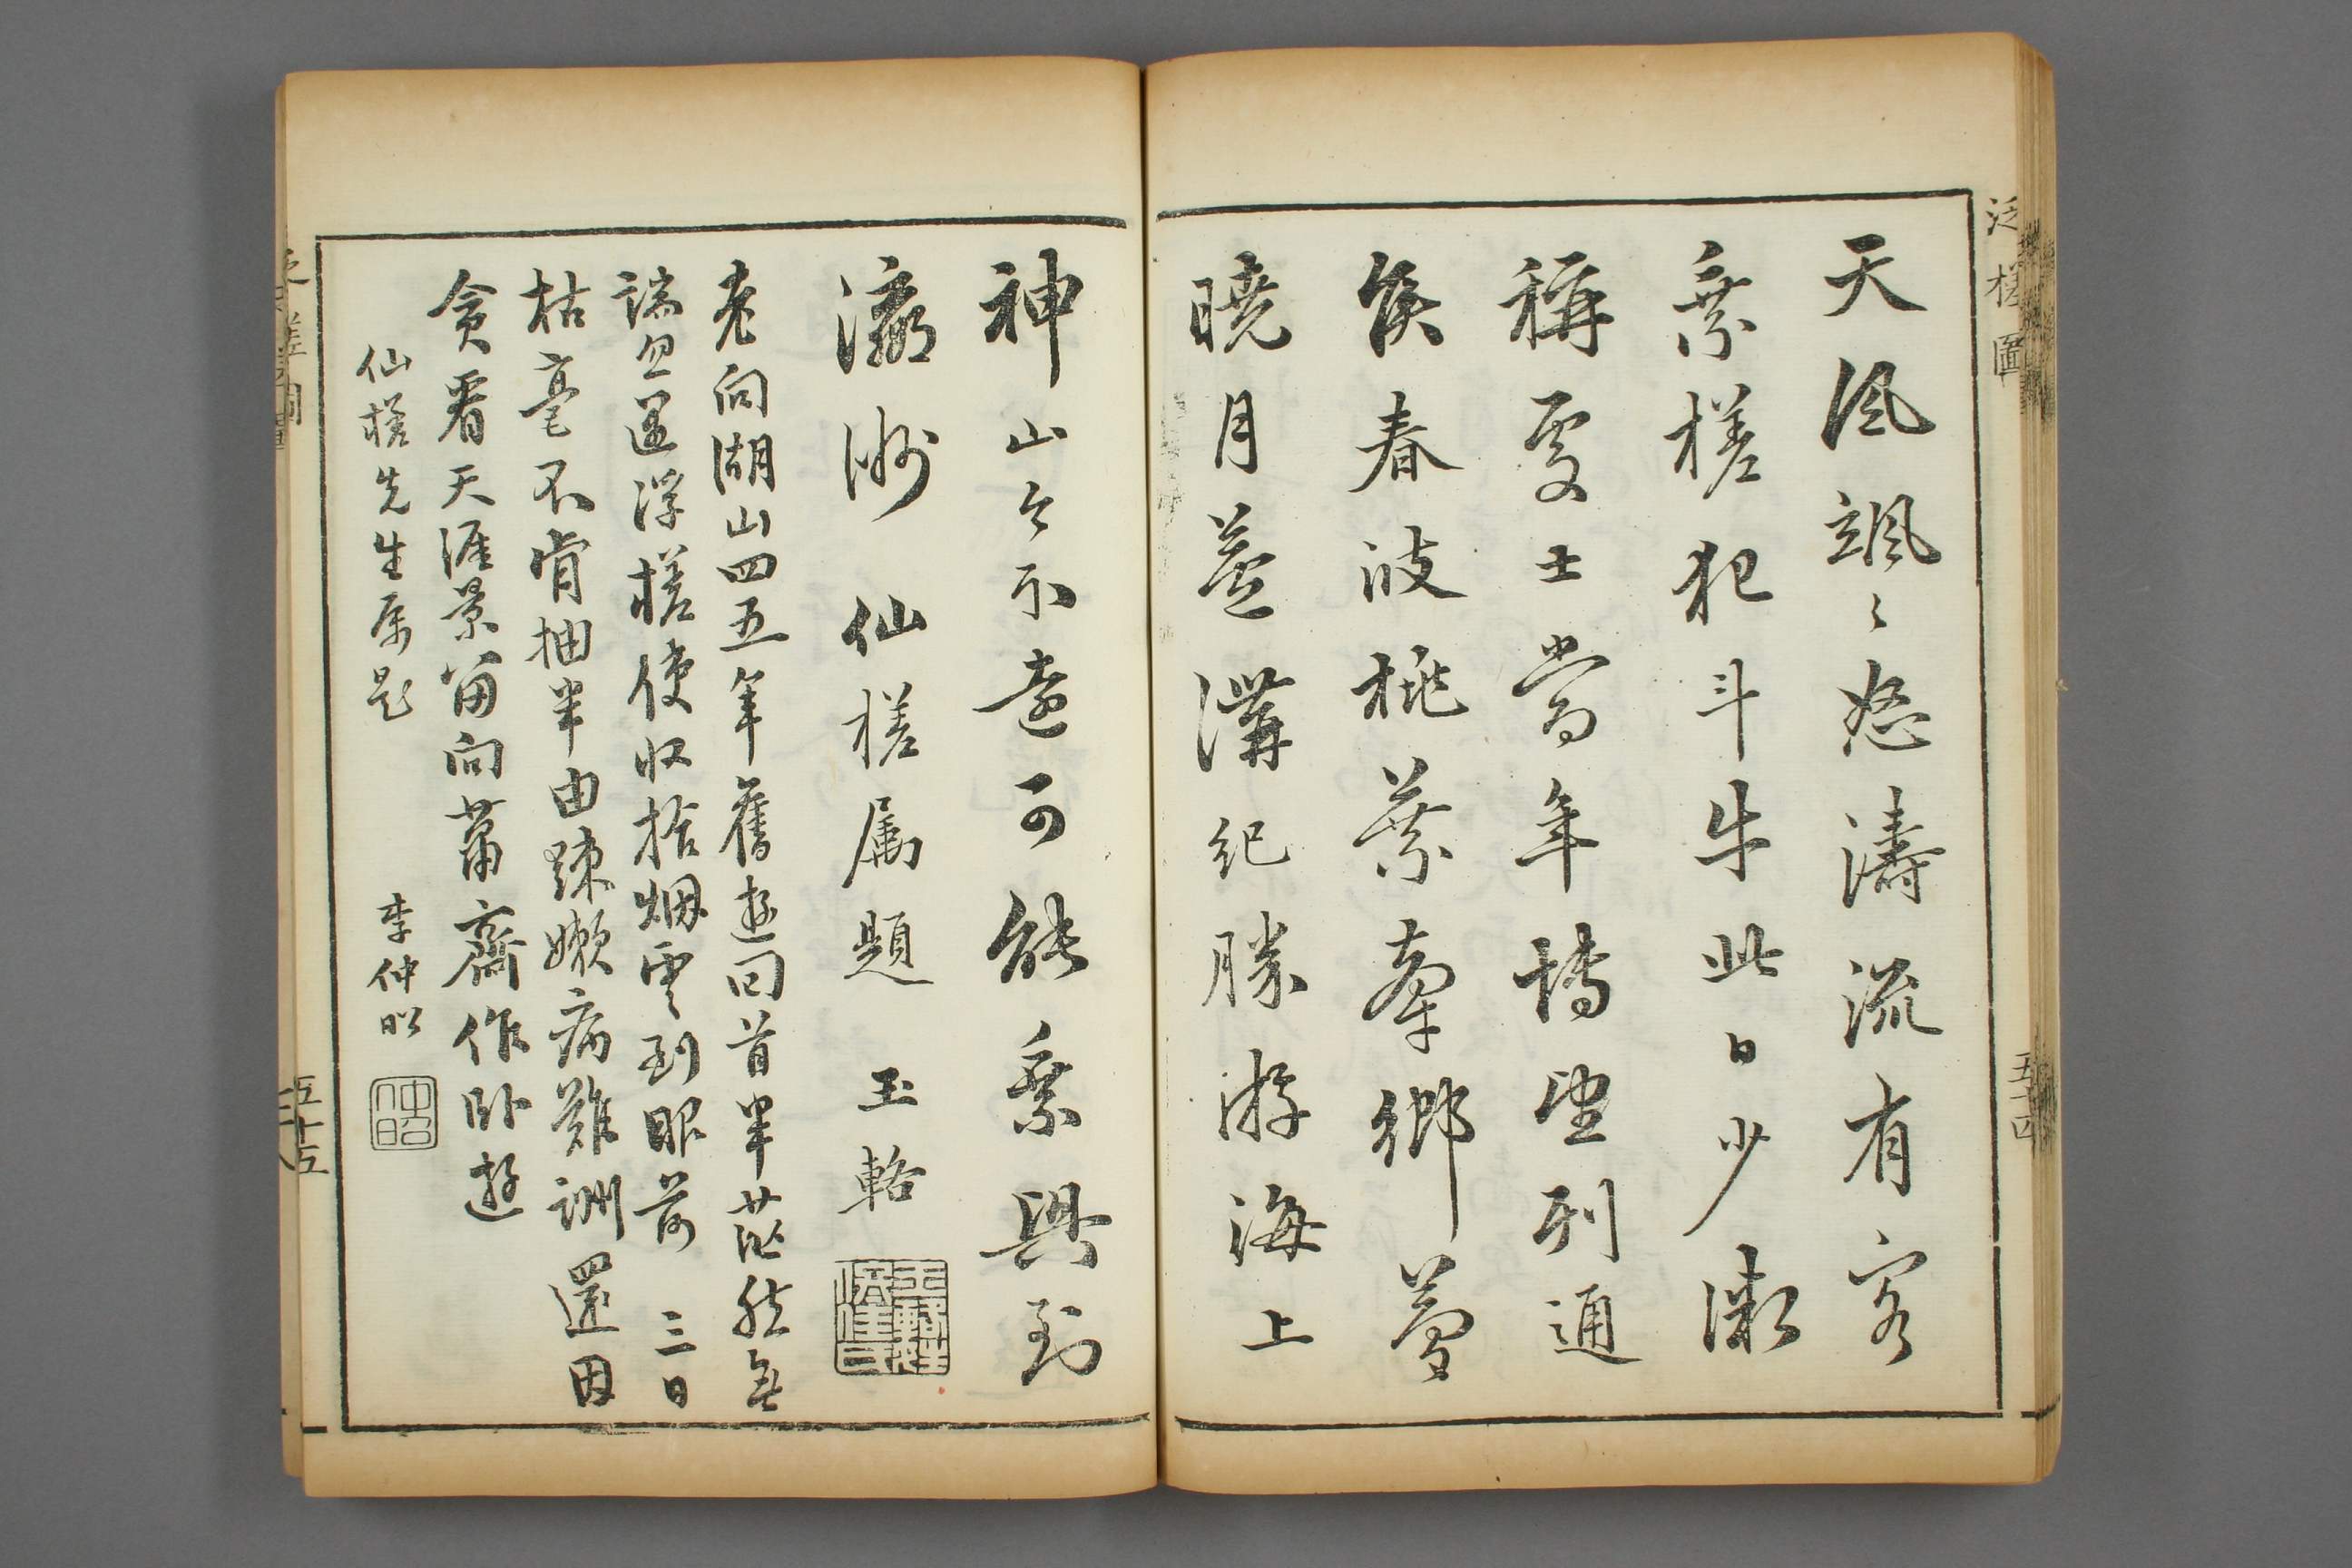 泛槎圖
五十四
天風颯〻怒濤流有客
乘槎犯斗牛此日少微
稱處士當年博望列通
侯春波桃葉牽鄉夢
曉月蘆溝紀勝游海上
神山今不遠可能乘興到
瀛洲 仙槎属題 王輅
老向湖山四五年舊遊回首半茫然無
端忽遇浮槎使收拾烟雲到眼前 三日
枯毫不肯抽半由踈嬾病難詶還因
貪看天涯景留向蕭齋作卧遊
仙槎先生属題 李仲昭
仲昭
五十五